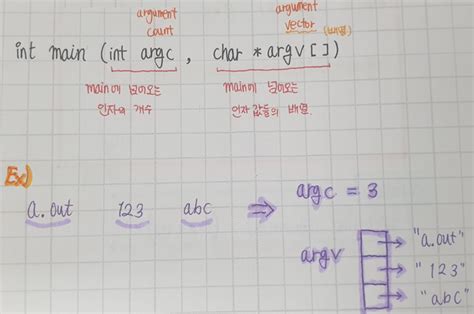 argument argument
count vector (배열)
int main (int argc , char * argv [ ])
main에 넘어오는 main에 넘어오는
인자의 개수 인자 값들의 배열.
Ex)
a.out 123 abc ⇒ argc = 3
argv → "a.out"
→ "123"
→ "abc"